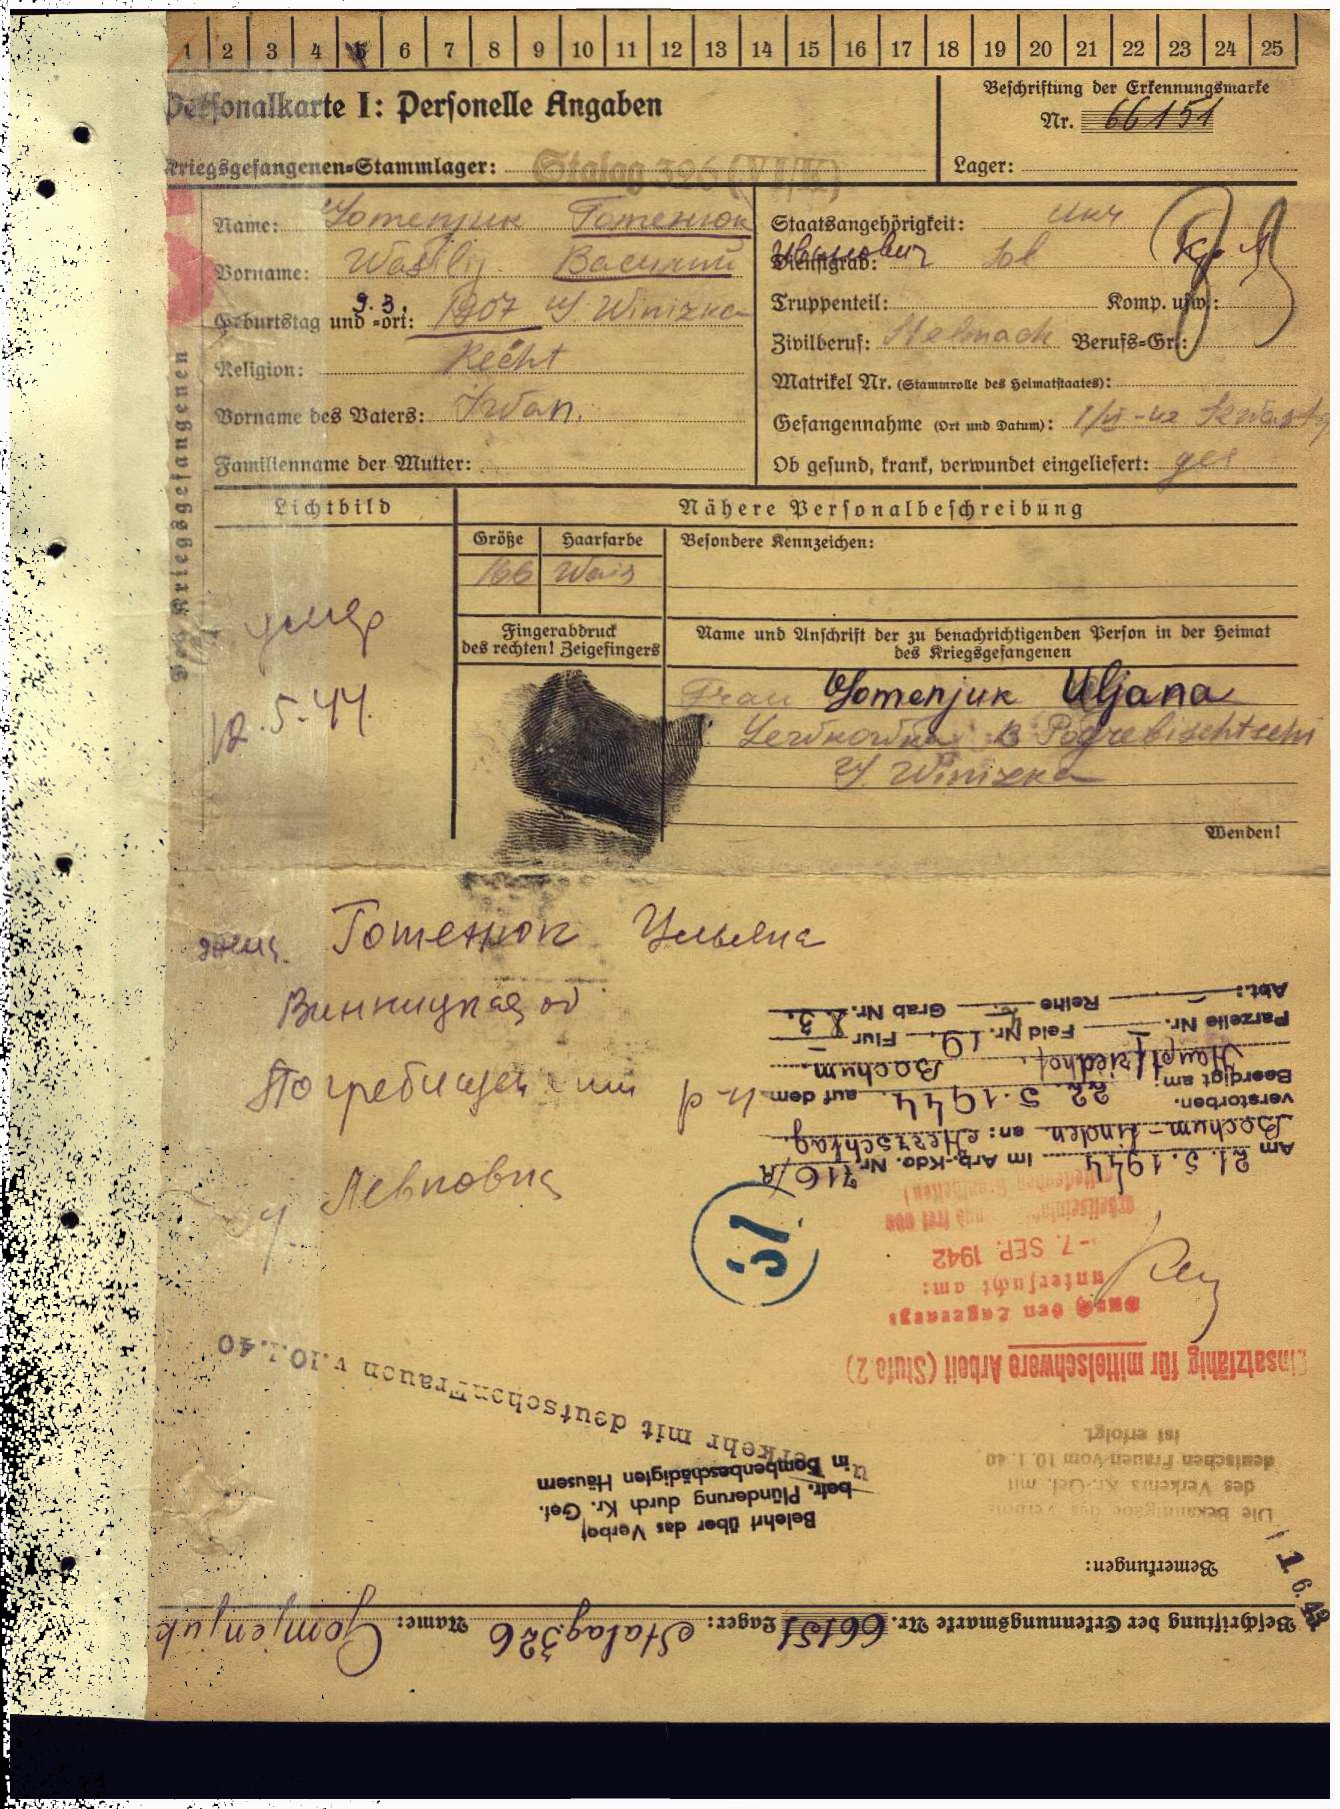 1 2 3 4 5 6 7 8 9 10 11 12 13 14 15 16 17 18 19 20 21 22 23 24 25
Personalkarte I: Personelle Angaben
Beschriftung der Erkennungsmarke
Nr. 66151
Kriegsgefangenen-Stammlager: Stalag 326 (VI/K)
Lager:
Des Kriegsgefangenen
Name: Gomenjuk Гоменюк
Vorname: Wasilij Василий
Geburtstag und -ort: 9.3. 1907 Winizka
Religion: Recht
Vorname des Vaters: Iwan.
Familienname der Mutter:
Staatsangehörigkeit: Ukr
Иванович
Dienstgrad: Sol Кр. А
Truppenteil: Komp. usw.:
Zivilberuf: Stelmach Berufs-Gr.:
Matrikel Nr. (Stammrolle des Heimatstaates):
Gefangennahme (Ort und Datum): 1/VI-42
Ob gesund, krank, verwundet eingeliefert: ges
Lichtbild
Nähere Personalbeschreibung
Größe Haarfarbe Besondere Kennzeichen:
166 Wais
умер
12.5.44.
Fingerabdruck
des rechten! Zeigefingers
Name und Anschrift der zu benachrichtigenden Person in der Heimat
des Kriegsgefangenen
Frau Gomenjuk Uljana
Lewkowka Pogrebischtschi
Winizka
Wenden!
жена Гоменюк Ульяна
Винницкая об
Погребищенский р-н
Левковка
Beschriftung der Erkennungsmarke Nr. 66151 Lager: Stalag 326 Name: Gomjenjuk
Bemerkungen:
1. 6. 43
Die Bekanntgabe des Verbots
des Verkehrs Kr.-Gef. mit
deutschen Frauen vom 10. 1. 40
ist erfolgt.
Belehrt über das Verbot
betr. Plünderung durch Kr. Gef.
in Bombenbeschädigten Häusern
u Verkehr mit deutschen Frauen v. 10.1.40
Einsatzfähig für mittelschwere Arbeit (Stufe 2)
Durch den Lagerarzt
untersucht am:
-7. SEP. 1942
51
Am 21.5.1944 im Arb.-Kdo. Nr. 716/A
Bochum-Linden an: Herzschlag
verstorben.
Beerdigt am: 22.5.1944. auf dem
Hauptfriedhof, Bochum
Parzelle Nr. Feld Nr. 19. Flur
Abt.: Reihe Grab Nr.